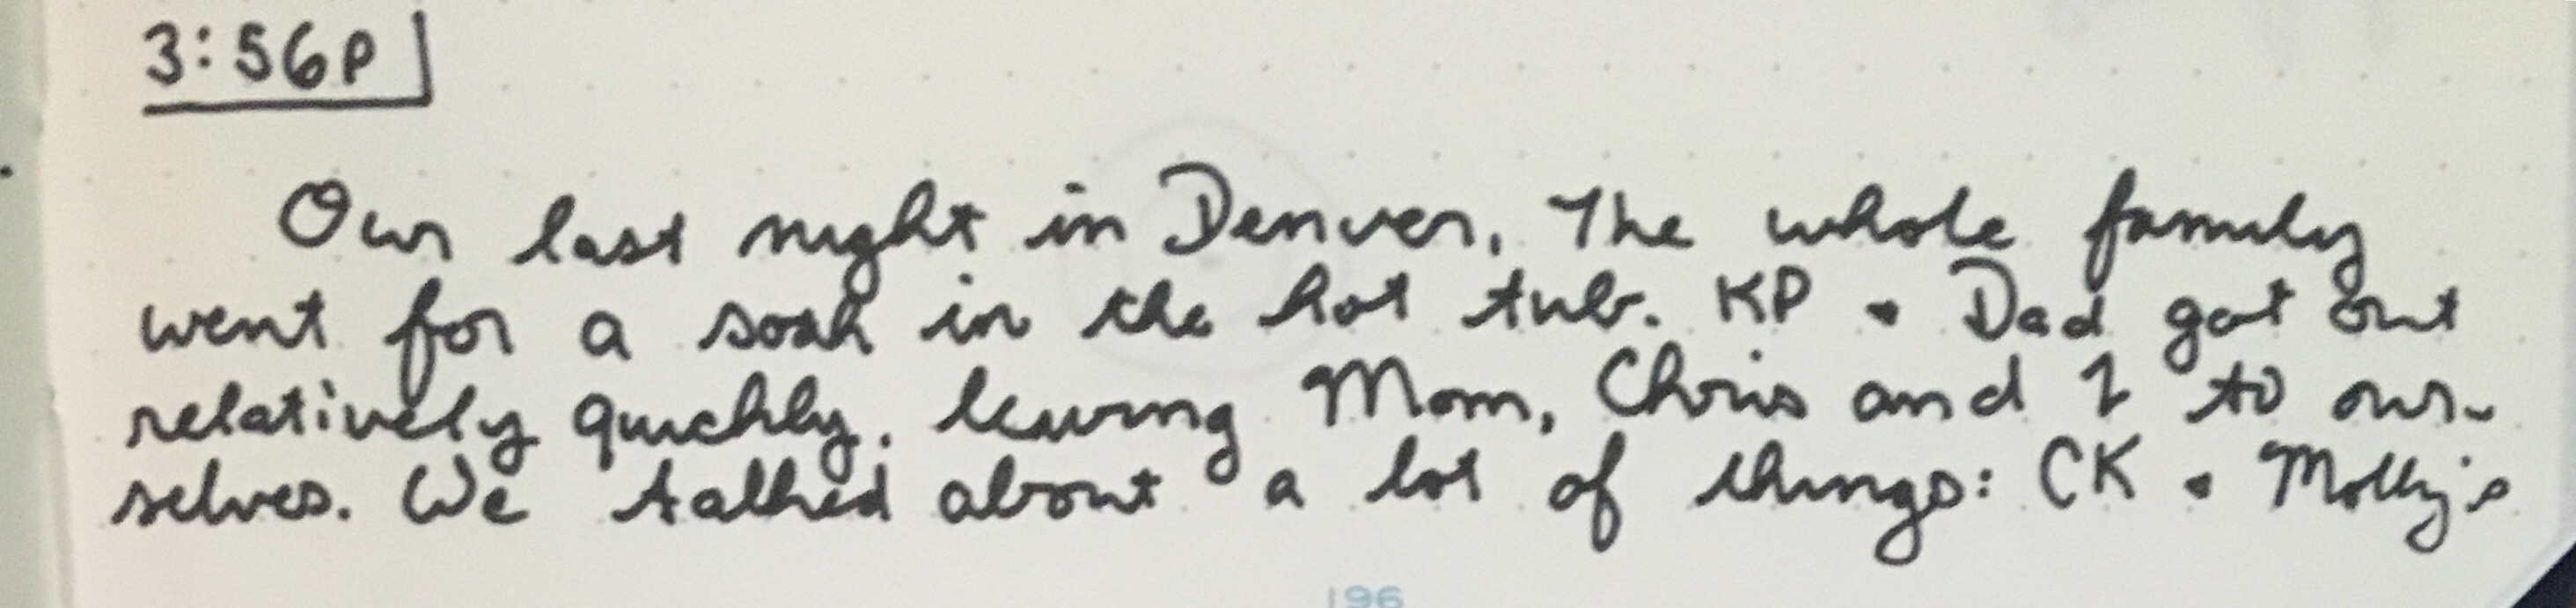 3:56P
Our last night in Denver. The whole family
went for a soak in the hot tub. KP • Dad got out
relatively quickly, leaving Mom, Chris and I to our-
selves. We talked about a lot of things: CK • Molly's
196